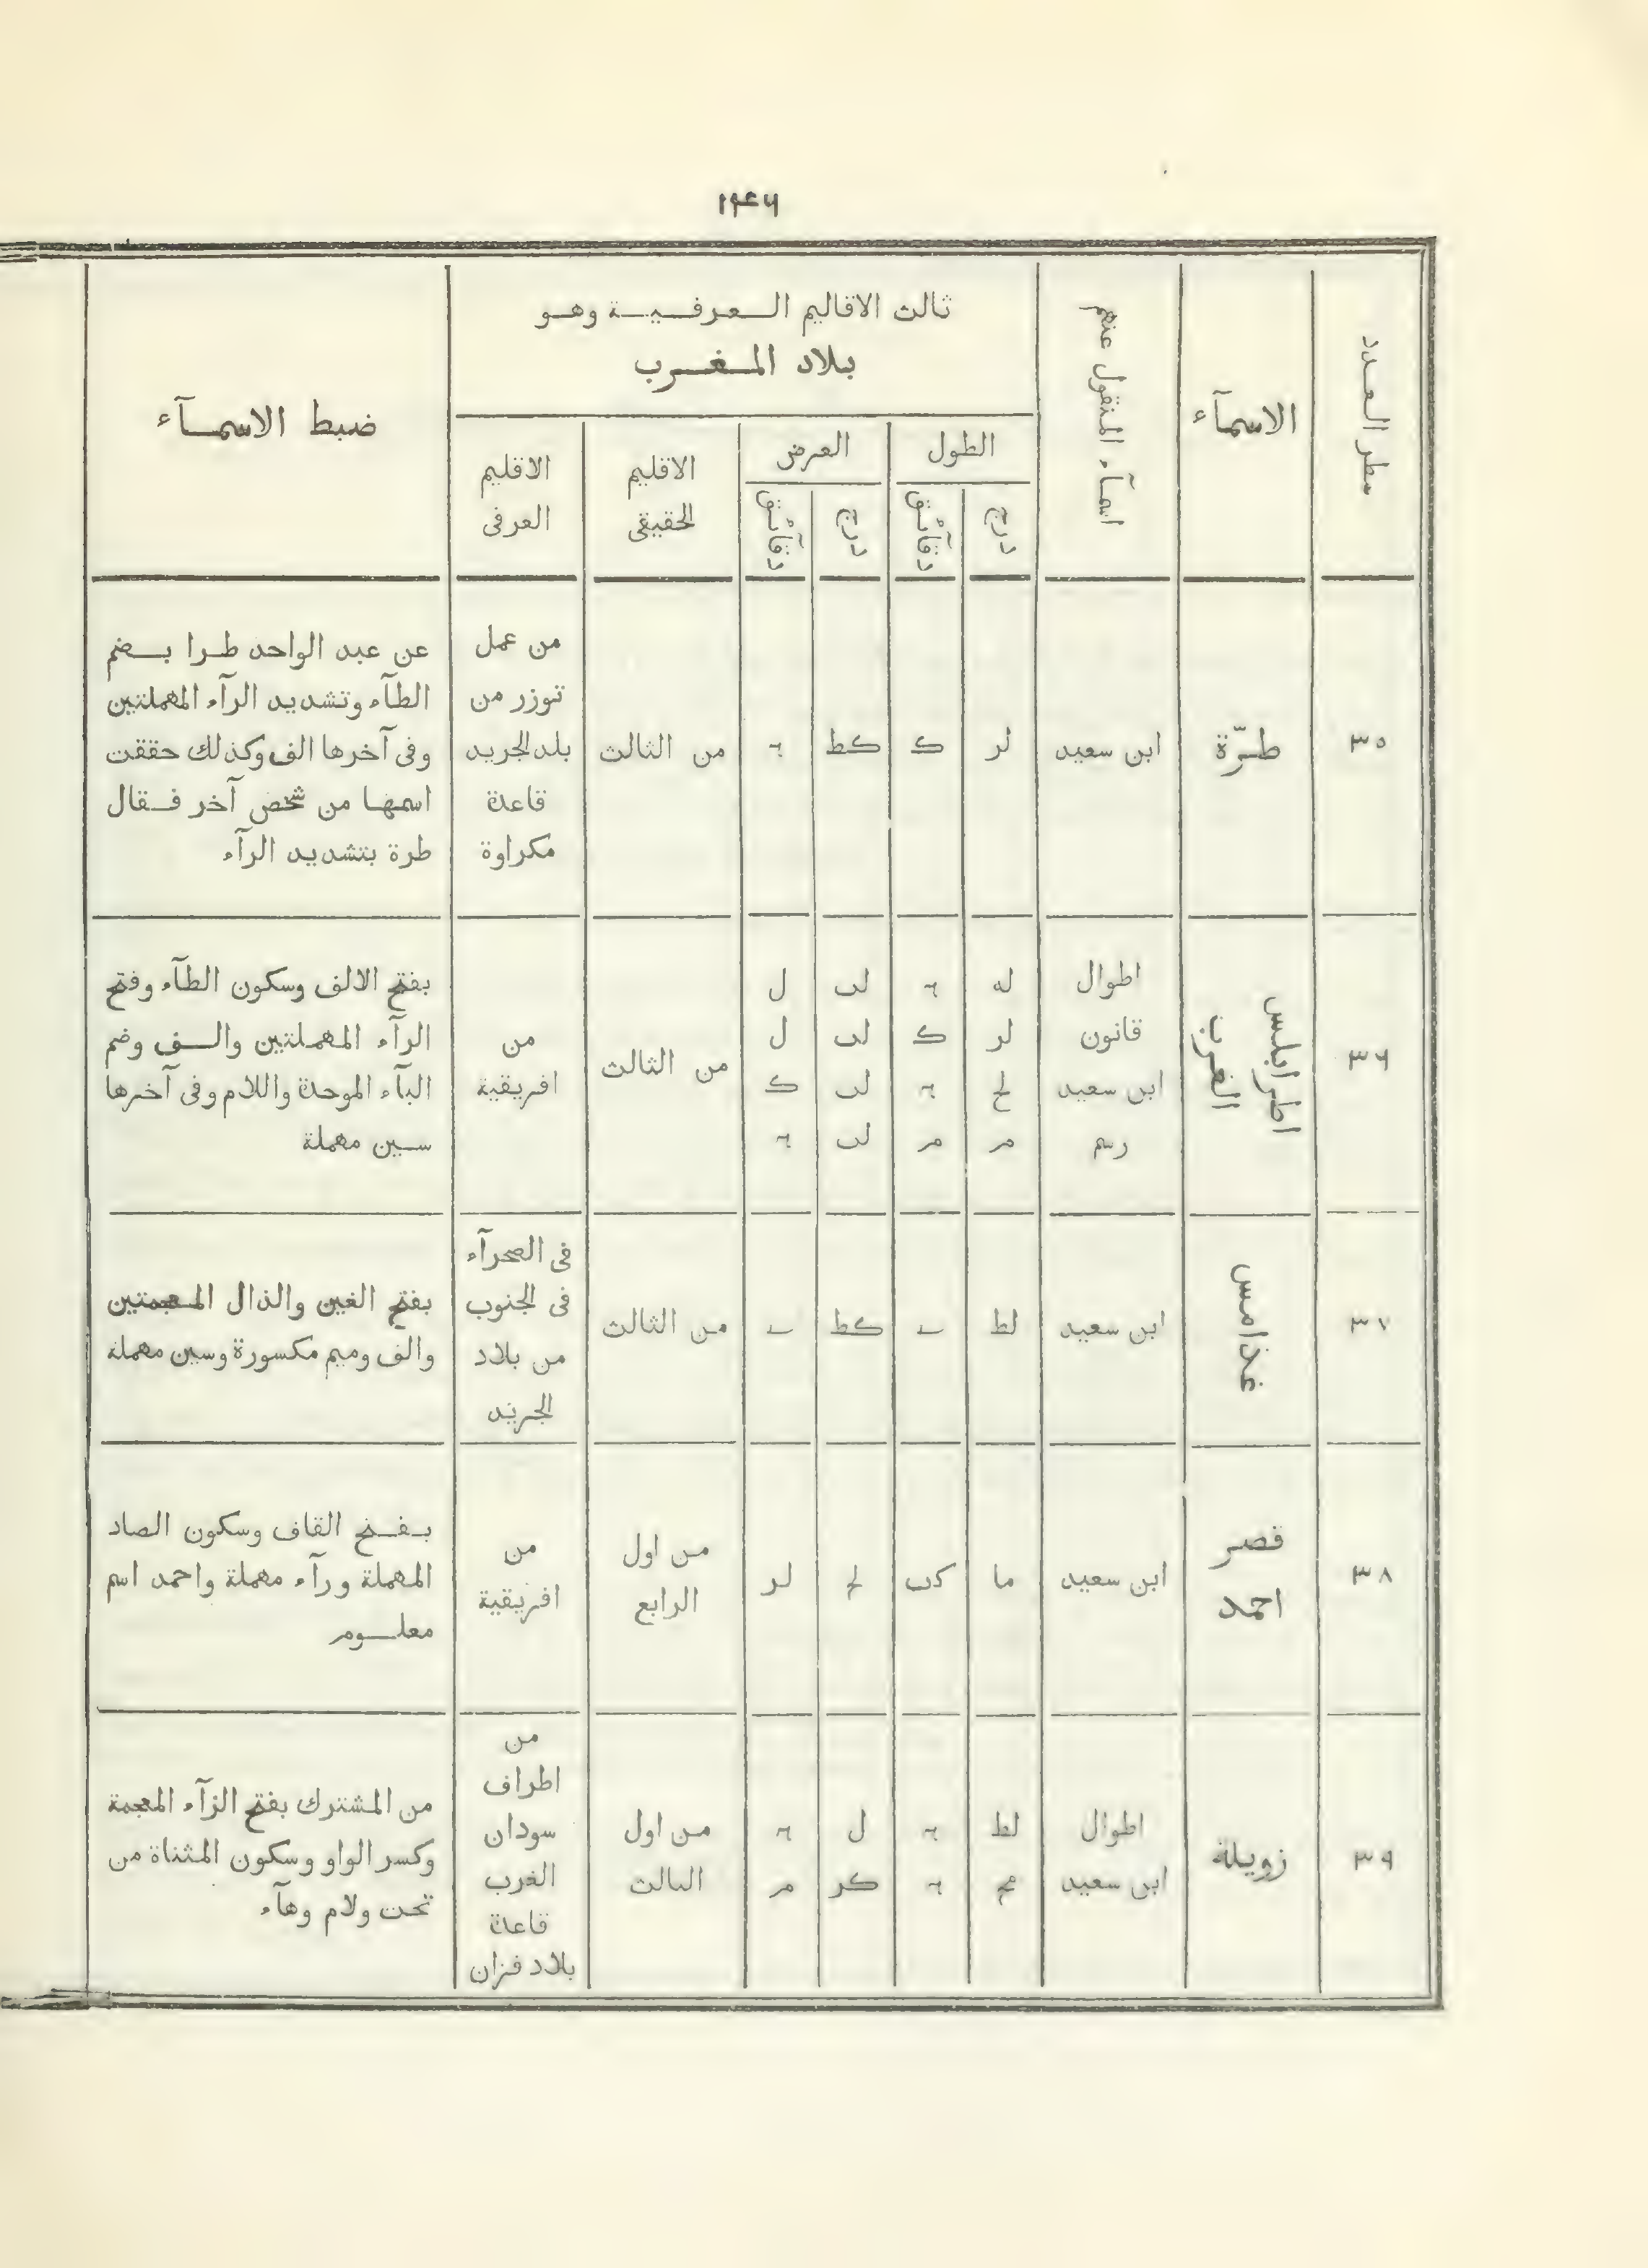 ١٤٦
ثالث الاقاليم العرفية وهو
بلاد المغرب
سطر العدد
الاسمآء
اسمآء المنقول عنهم
الطول
العرض
درج
دقآئق
درج
دقآئق
الاقليم
الحقيقى
الاقليم
العرفى
ضبط الاسمآء
٣٥
طرّة
ابن سعيد
لر
ك
كط
من الثالث
من عمل
توزر من
بلد الجريد
قاعدة
مكراوة
عن عبد الواحد طرا بضم
الطآء وتشديد الرآء المهملتين
وفى آخرها الف وكذلك حققت
اسمها من شخص آخر فقال
طرة بتشديد الرآء
٣٦
اطرابلس
الغرب
اطوال
قانون
ابن سعيد
رسم
له
لر
لح
مر
ك
مر
لب
لب
لب
لب
ل
ل
ك
من الثالث
من
افريقية
بفتح الالف وسكون الطآء وفتح
الرآء المهملتين والف وضم
البآء الموحدة واللام وفى آخرها
سين مهملة
٣٧
غذامس
ابن سعيد
لط
كط
من الثالث
فى الصحرآء
فى الجنوب
من بلاد
الجريد
بفتح الغين والذال المعجمتين
والف وميم مكسورة وسين مهملة
٣٨
قصر
احمد
ابن سعيد
ما
كب
لح
لر
من اول
الرابع
من
افريقية
بفتح القاف وسكون الصاد
المهملة ورآء مهملة واحمد اسم
معلوم
٣٩
زويلة
اطوال
ابن سعيد
لط
مح
ل
كر
مر
من اول
الثالث
من
اطراف
سودان
الغرب
قاعدة
بلاد فزان
من المشترك بفتح الزآء المعجمة
وكسر الواو وسكون المثناة من
تحت ولام وهآء